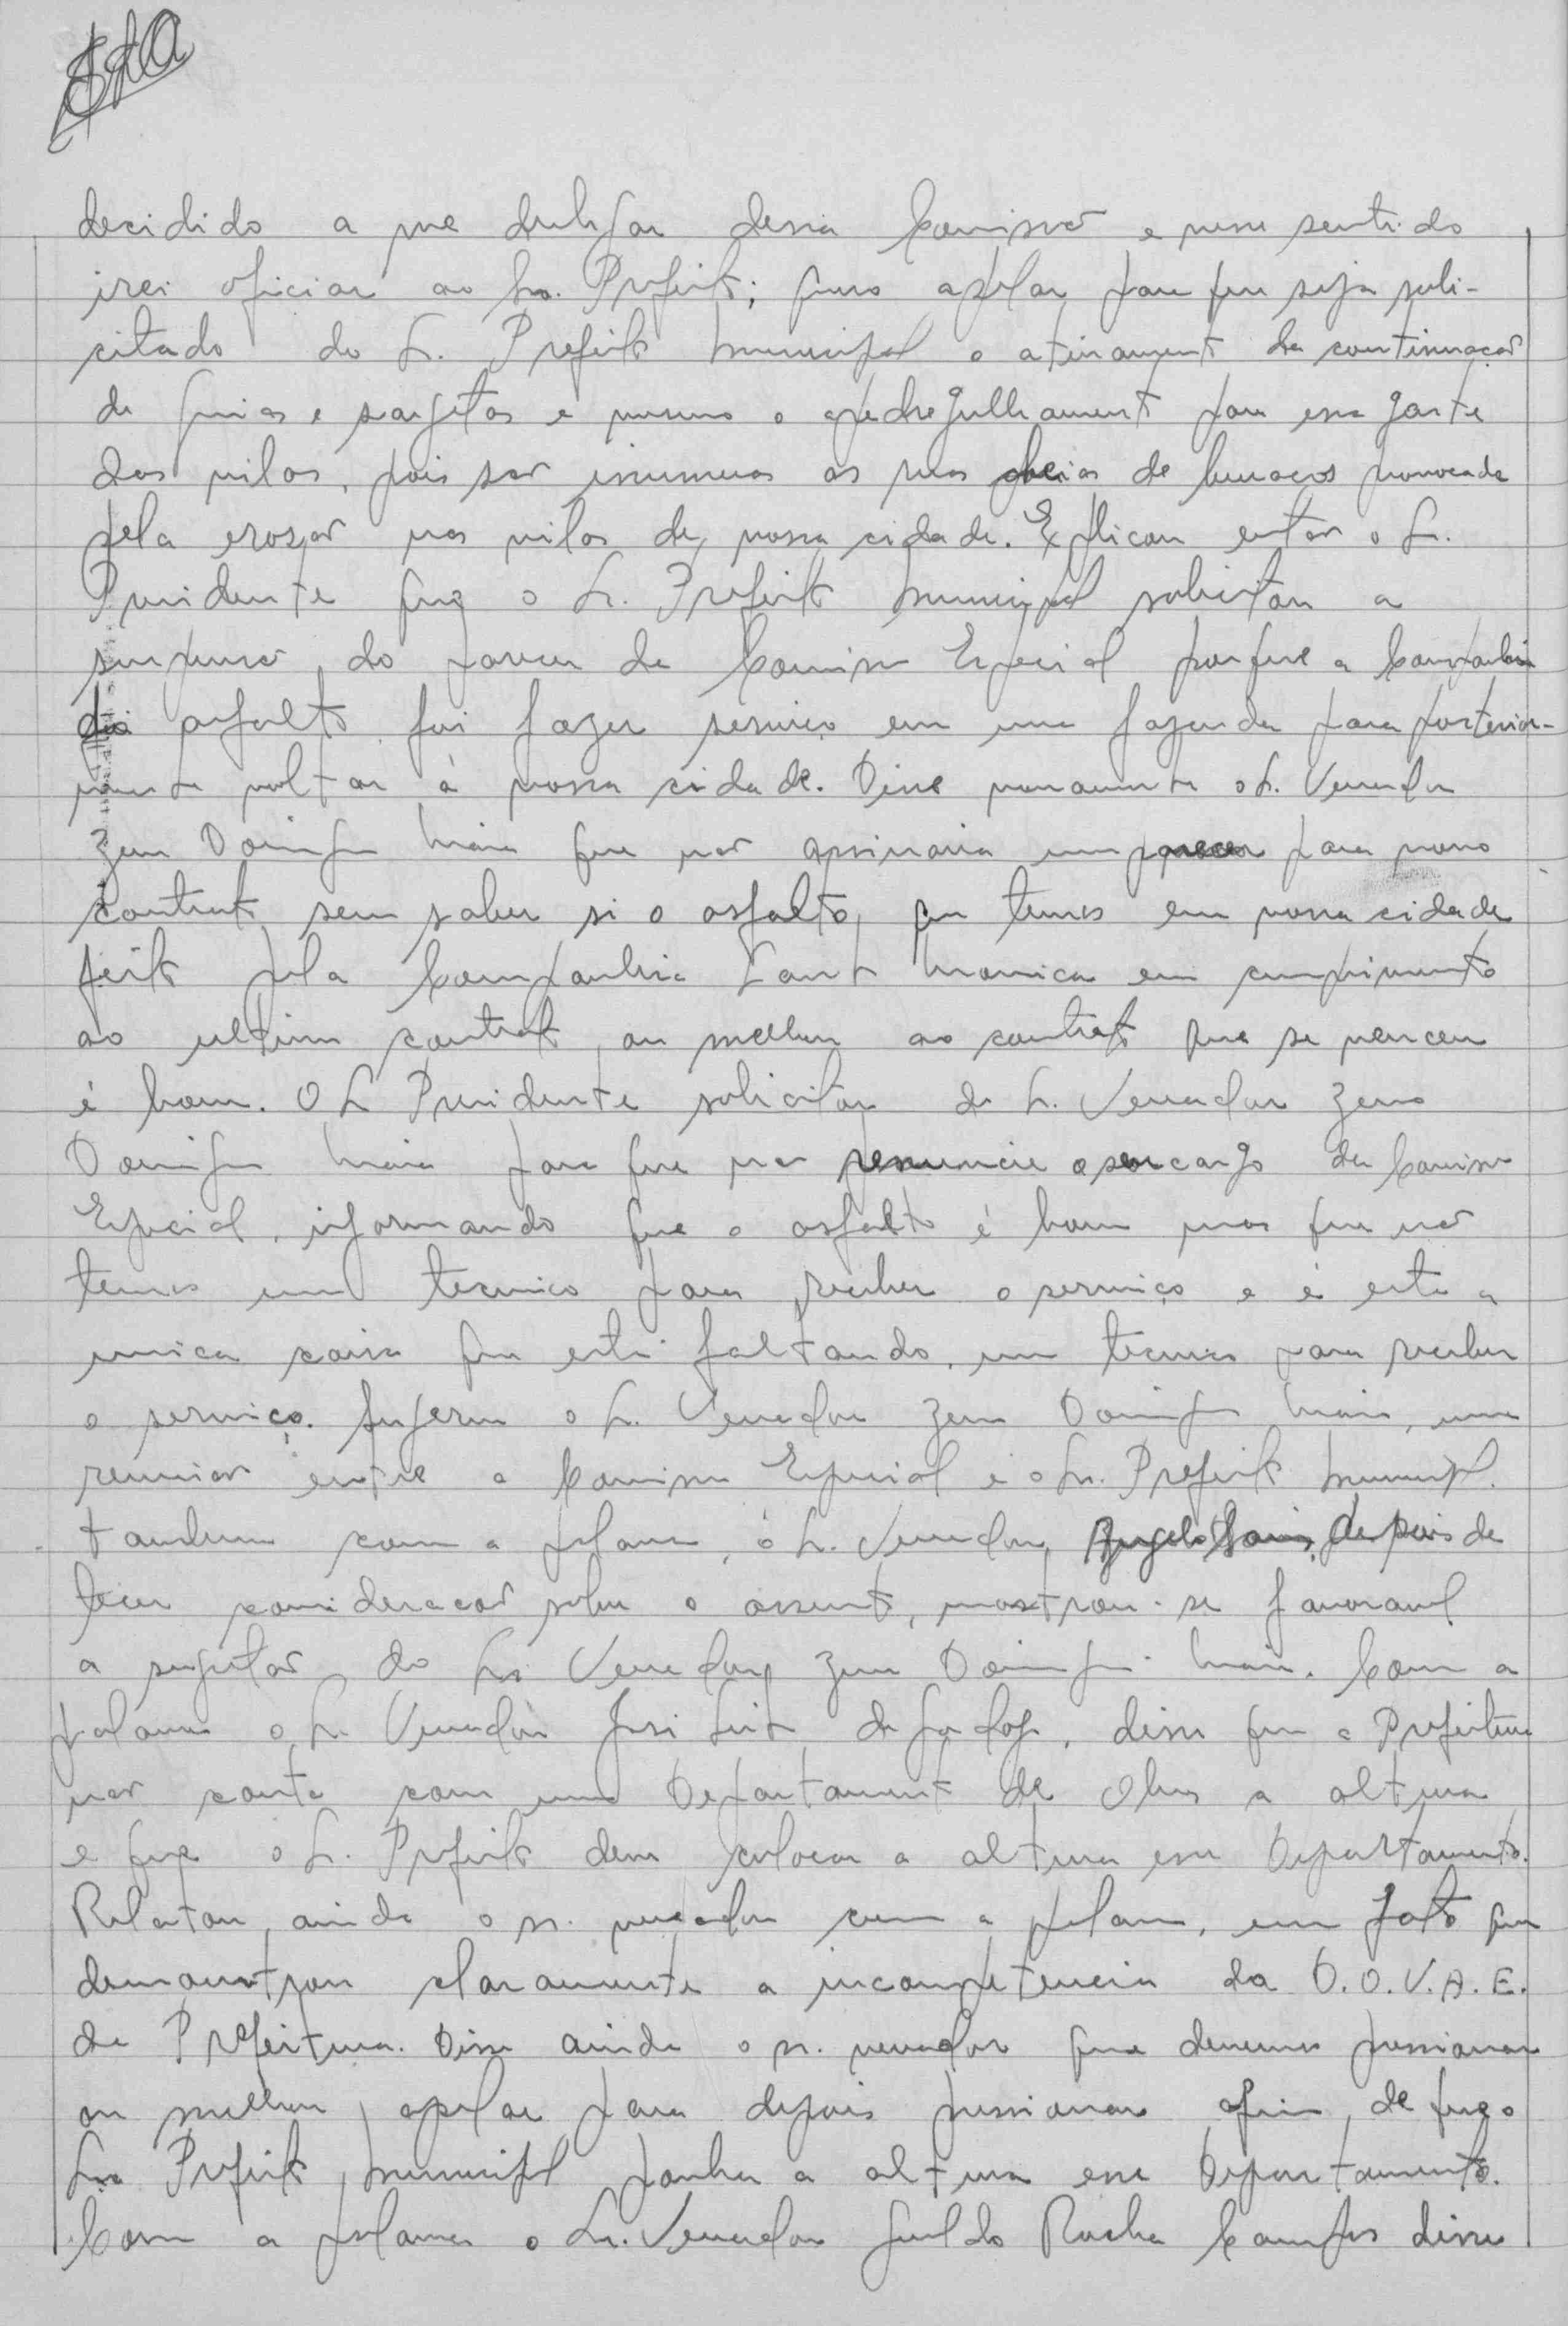 decidido a me desligar dessa Comissão e nesse sentido
irei oficiar ao Sr. Prefeito; quero apelar para que seja soli-
citado do Sr. Prefeito Municipal o atinamento da continuação
de guias e sarjetas e mesmo o apedregulhamento para essa parte
das vilas, pois são inumeras as ruas cheias de buracos provocada
pela erosão nas vilas de nossa cidade. Explicou então o Sr.
Presidente que o Sr. Prefeito Municipal solicitou a
suspensão do parecer da Comissão Especial porque a Companhia
do asfalto foi fazer serviço em uma fazenda para posterior-
mente voltar à nossa cidade. Disse novamente o Sr. Vereador
Zeno Domingos Maia que não assinaria um parecer para novo
contrato sem saber si o asfalto que temos em nossa cidade
feito pela Companhia Santa Monica em cumprimento
ao ultimo contrato, ou melhor ao contrato que se venceu
é bom. O Sr Presidente solicitou do Sr. Vereador Zeno
Domingos Maia para que não renuncie o seu cargo da Comissão
Especial, informando que o asfalto é bom mas que não
temos um tecnico para receber o serviço e é esta a
unica coisa que está faltando, um tecnico para receber
o serviço. Sugeriu o Sr. Vereador Zeno Domingos Maia, uma
reunião entre a Comissão Especial e o Sr. Prefeito Municipal.
Tambem com a palavra, o Sr. Vereador Angelo depois de
tecer consideração sobre o assunto, mostrou-se favoravel
a sugestão do Sr. Vereador Zeno Domingos Maia. Com a
palavra o Sr. Vereador José Leite de Godoy, disse que a Prefeitura
não conta com um Departamento de Obras a altura
e que o Sr. Prefeito deve colocar a altura esse Departamento.
Relatou, ainda o n. vereador com a palavra, um fato que
demonstrou claramente a incompetencia da D.O.V.A.E.
da Prefeitura. Disse ainda o n. vereador que devemos pressionar
ou melhor, apelar para depois pressionar afim de que o
Sr. Prefeito Municipal ponha a altura esse Departamento.
Com a palavra o Sr. Vereador Geraldo Rocha Campos disse